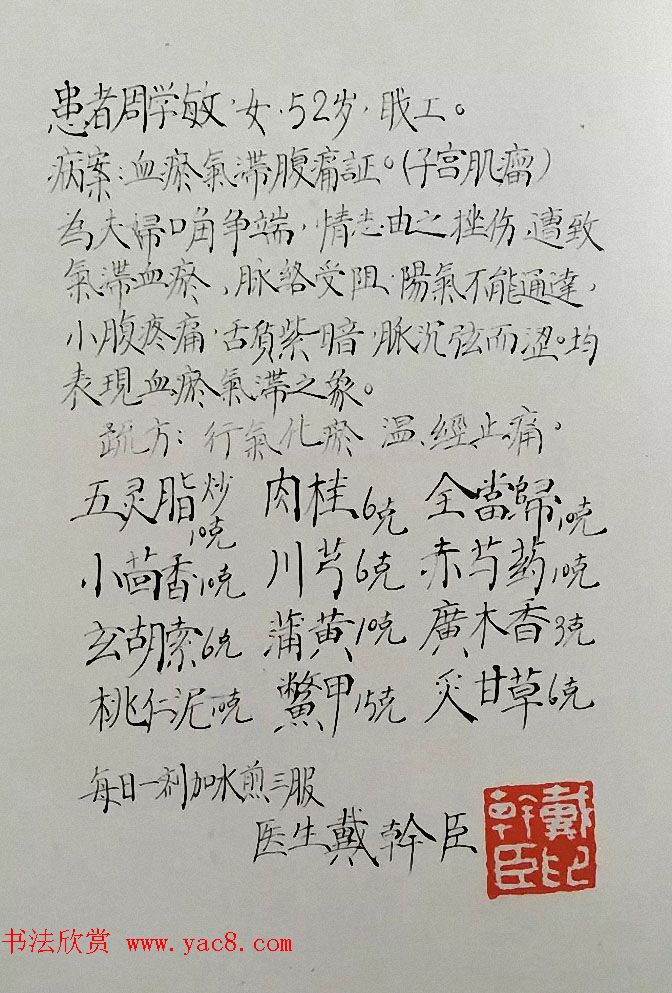 患者周学敏，女，52岁，职工。
病案：血瘀氣滞腹痛証。（子宫肌瘤）
為夫婦口角争端，情志由之挫伤，遭致
氣滞血瘀，脉络受阻，陽氣不能通達，
小腹疼痛，舌质紫暗，脉沉弦而涩。均
表現血瘀氣滞之象。
疏方：行氣化瘀 温經止痛。
五灵脂炒10克 肉桂6克 全當歸10克
小茴香10克 川芎6克 赤芍药10克
玄胡索6克 蒲黄10克 廣木香3克
桃仁泥10克 鱉甲15克 炙甘草6克
每日一剂加水煎三服
医生戴幹臣
戴幹臣印
书法欣赏 www.yac8.com